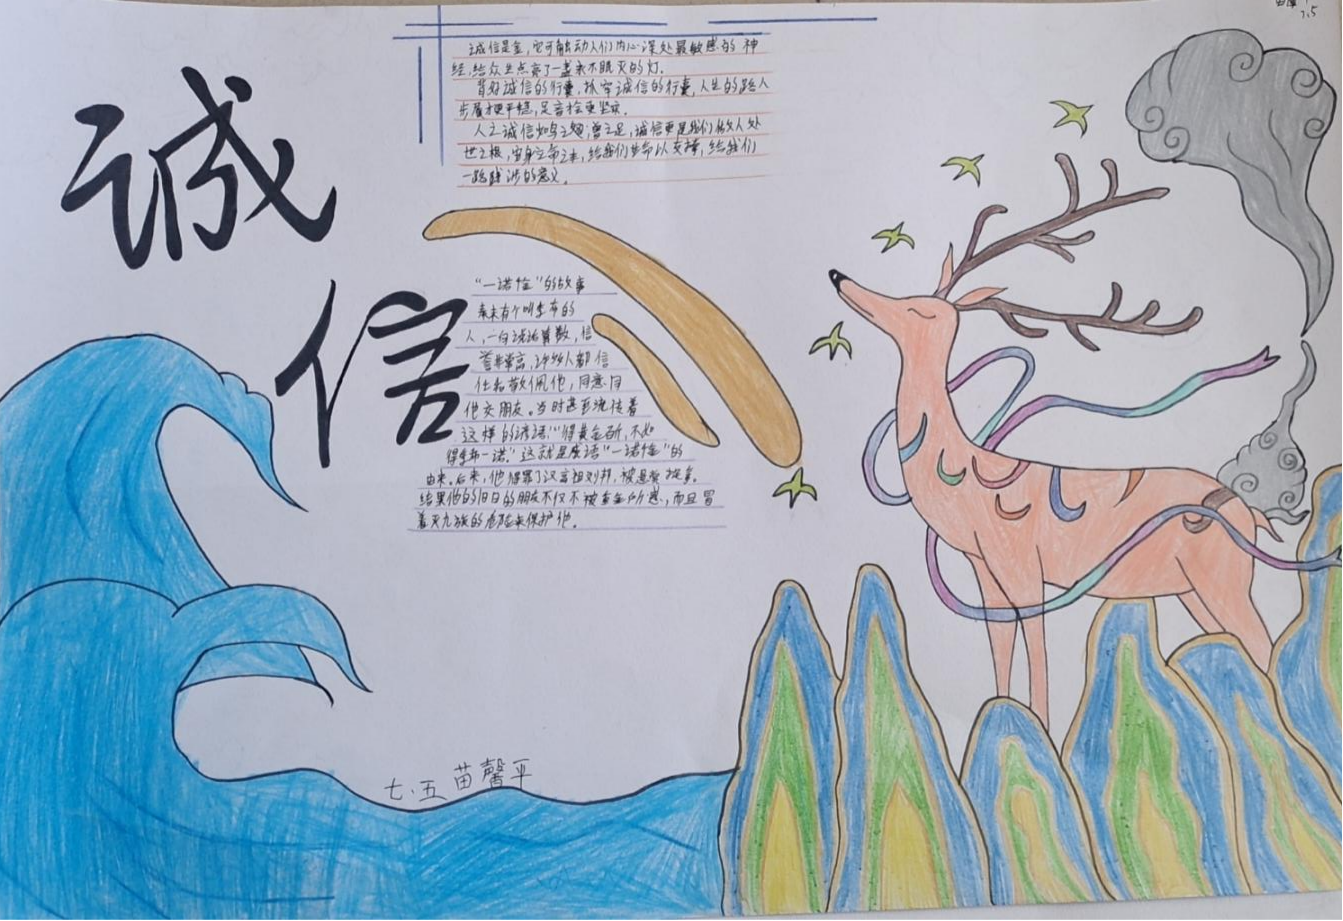 诚信
诚信是金,它可触动人们内心深处最敏感的神
经,给众生点亮了一盏永不眠灭的灯。
背好诚信的行囊,抓牢诚信的行囊,人生的路人
步履才更平稳,足音才会更坚实。
人之诚信如鸟之翅,兽之足,诚信更是我们做人处
世之根,安身立命之本,给我们生命以支撑,给我们
一路跋涉的意义。
“一诺千金”的故事
秦末有个叫季布的
人,一向说话算数,信
誉非常高,许多人都信
任和敬佩他,同意同
他交朋友。当时甚至流传着
这样的谚语:“得黄金百斤,不如
得季布一诺。”这就是成语“一诺千金”的
由来。后来,他得罪了汉高祖刘邦,被悬赏捉拿。
结果他的旧日的朋友不仅不被重金所惑,而且冒
着灭九族的危险来保护他。
七.五 苗馨平
7.5